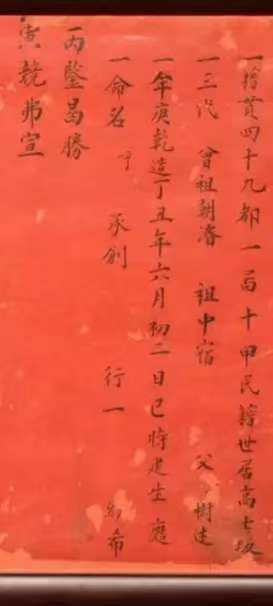 一籍贯四十九都一百十甲民籍世居高士坂
一三代 曾祖朝濬 祖中宿 父樹述
一年庚乾造丁丑年六月初二日巳時建生
一命名 承創 行一
丙鑒曷勝
寅兢弗宣